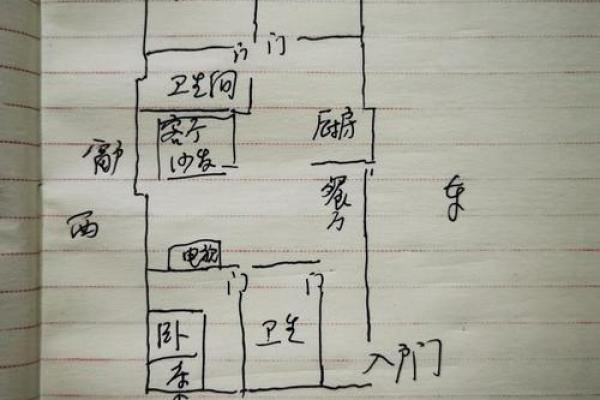 门 门
卫生间
客厅
沙发
厨房
窗户
西
餐厅
东
电视
门 门
卧
卫生
入户门